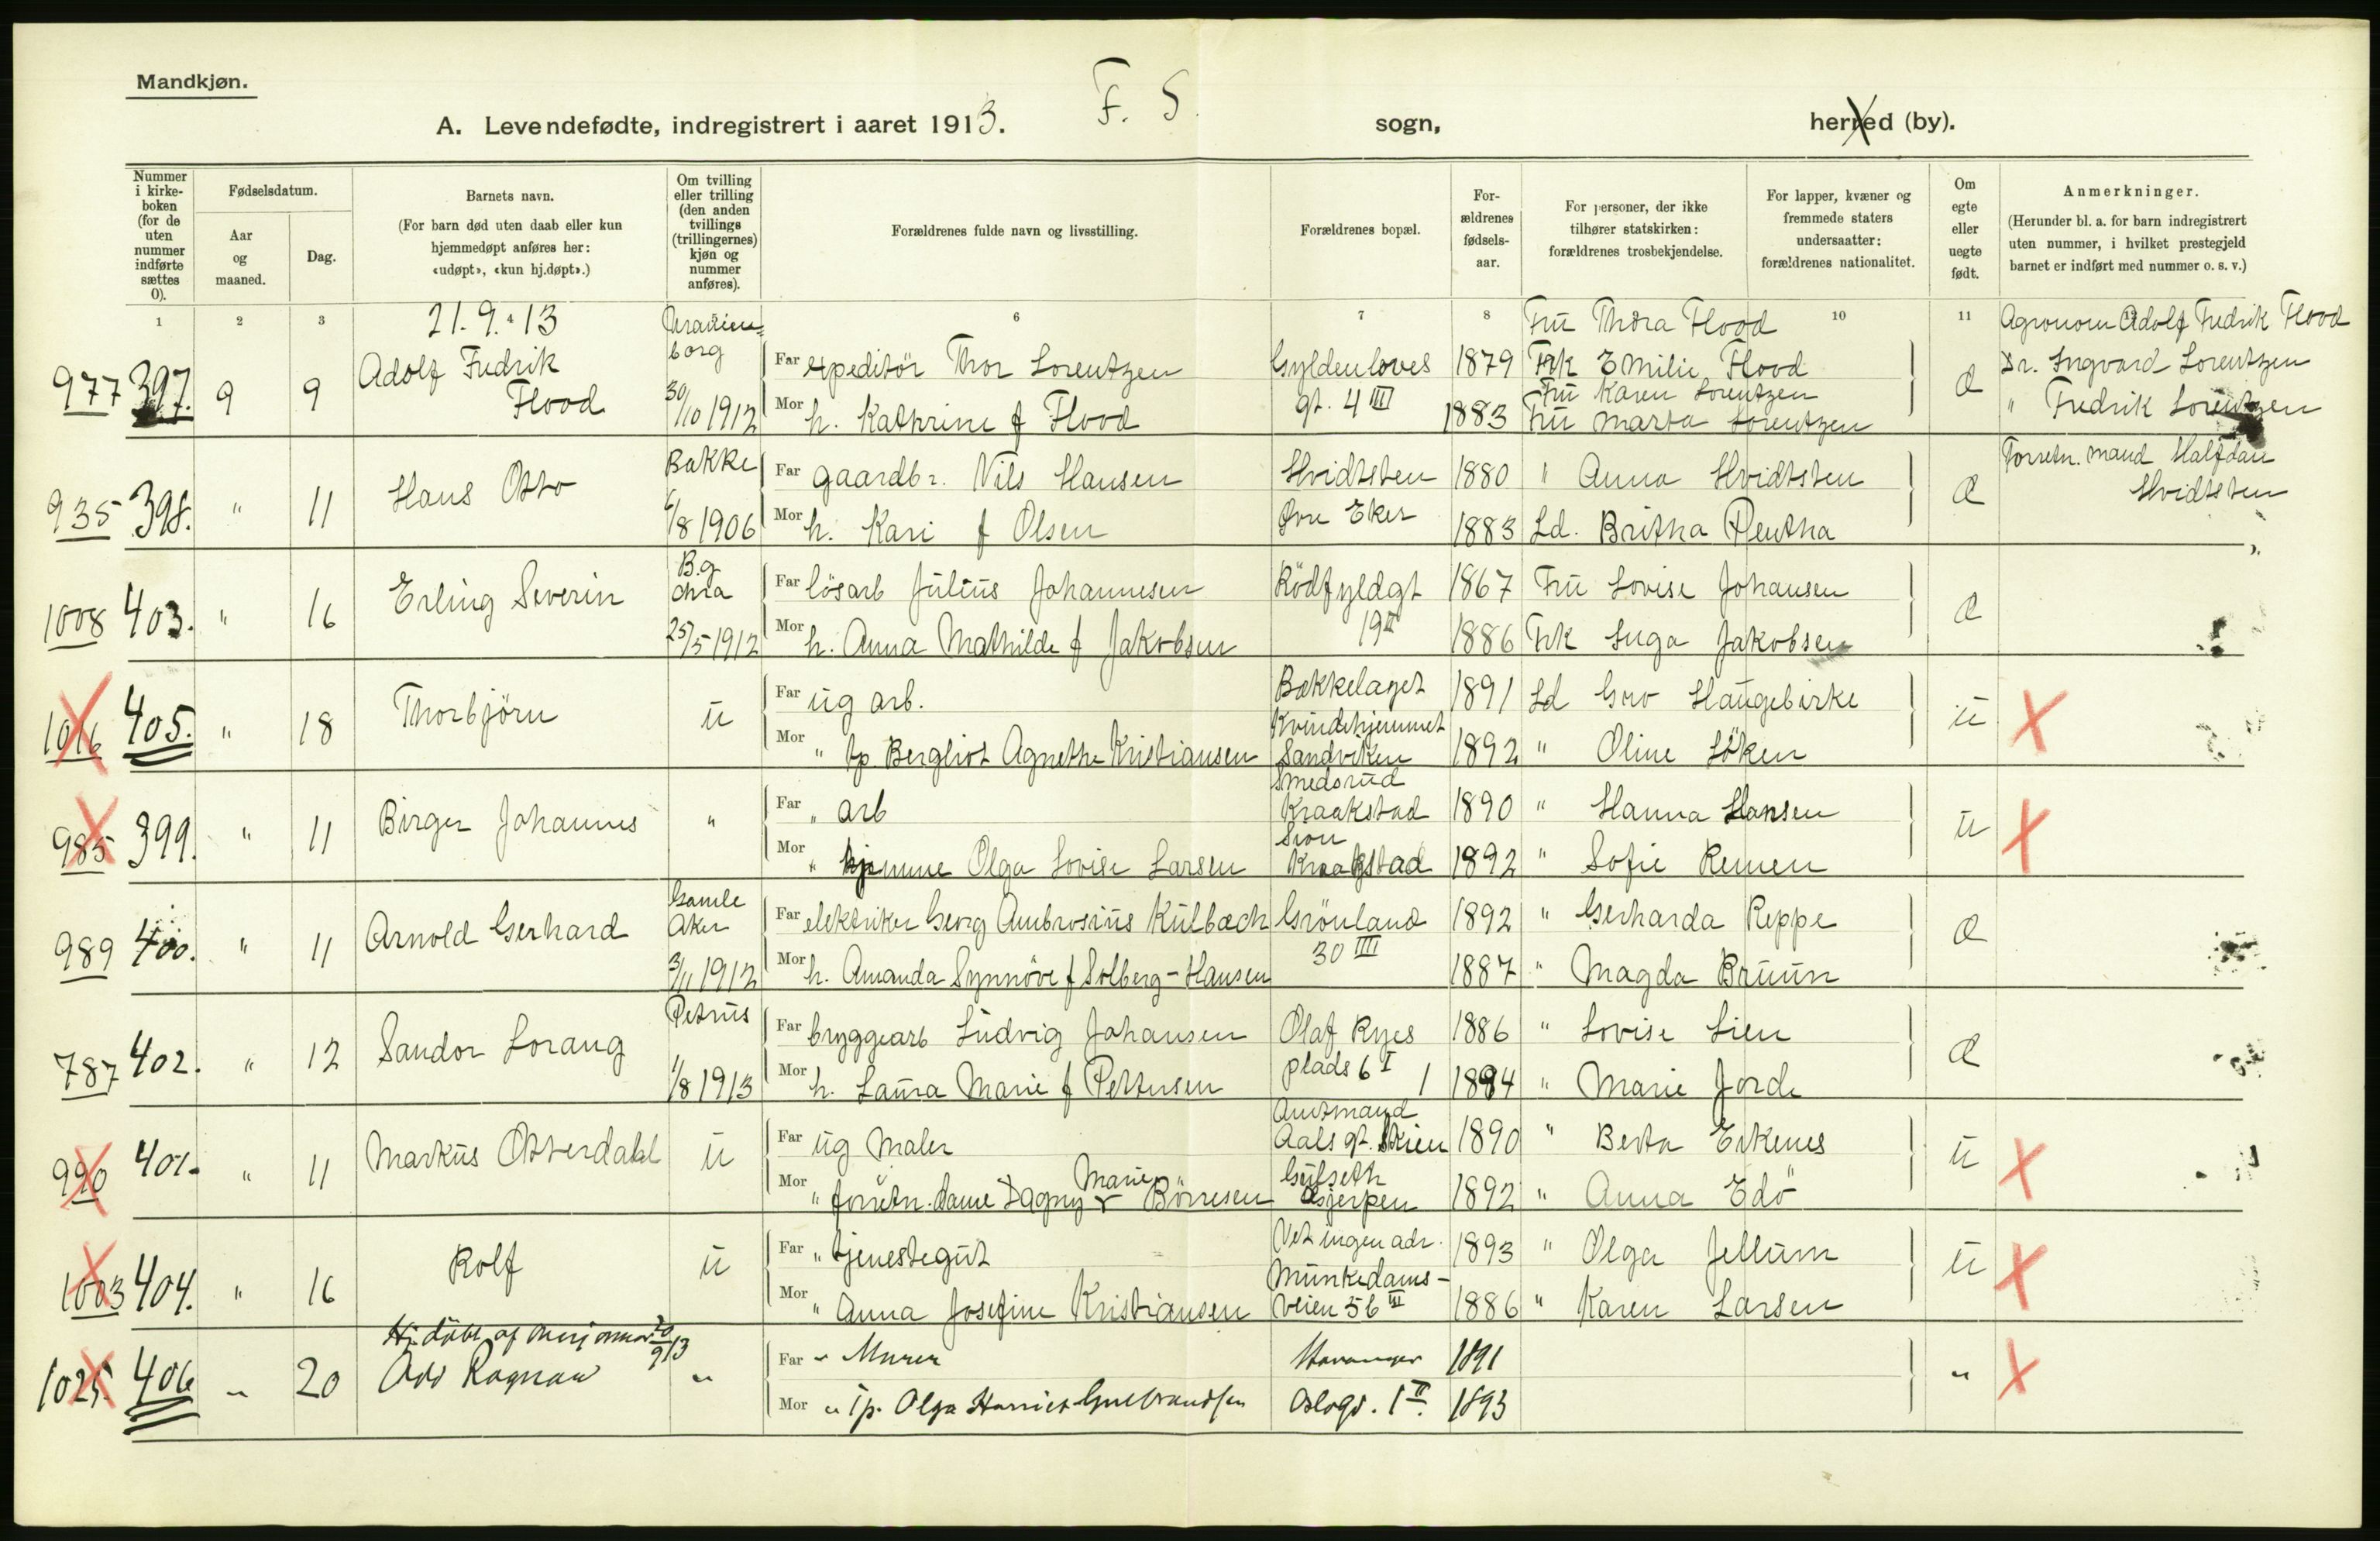 Mandkjøn.
F. S.
A. Levendefødte, indregistrert i aaret 1913. sogn, herred (by).
Nummer i kirkeboken (for de uten nummer indførte sættes 0).
Fødselsdatum.
Aar og maaned.
Dag.
Barnets navn.
(For barn død uten daab eller kun hjemmedøpt anføres her: «udøpt», «kun hj.døpt».)
Om tvilling eller trilling (den anden tvillings (trillingernes) kjøn og nummer anføres).
Forældrenes fulde navn og livsstilling.
Forældrenes bopæl.
Forældrenes fødselsaar.
For personer, der ikke tilhører statskirken: forældrenes trosbekjendelse.
For lapper, kvæner og fremmede staters undersaatter: forældrenes nationalitet.
Om egte eller uegte født.
Anmerkninger.
(Herunder bl. a. for barn indregistrert uten nummer, i hvilket prestegjeld barnet er indført med nummer o. s. v.)
1 2 3 4 6 7 8 10 11
21. 9. 13
977 397. 9 9 Adolf Fredrik Flood
borg 30/10 1912
Far expeditör Thor Lorentzen Gyldenloves 1879
Mor h. Kathrine f Flood gt. 4 III 1883
Fru Thora Flood
Frk Emilie Flood
Fru Karen Lorentzen
Fru Marta Lorentzen
Æ
Agronom Adolf Fredrik Flood
Dr. Ingvard Lorentzen
" Fredrik Lorentzen
935 398. " 11 Hans Otto
Bakke 6/8 1906
Far gaardbr. Nils Hansen Hvidtsten 1880 " Anna Hvidtsten
Mor h. Kari f Olsen Øvre Eker 1883 Ld. Britha Rentha
Æ
Forretn. mand Halfdan Hvidtsten
1008 403. " 16 Erling Severin
B.g. Chra 25/5 1912
Far løsarb Julius Johannesen Rödfyldgt 1867 Fru Lovise Johansen
Mor h. Anna Mathilde f Jakobsen 19 II 1886 Frk Inga Jakobsen
Æ
1016 405. " 18 Thorbjörn ü
Far üg arb. Bækkelaget 1891 Ld Gro Haugebirke
Mor " tp. Bergliot Agnethe Kristiansen Kvindehjemmet Sandviken 1892 " Oline Löken
ü X
985 399. " 11 Birger Johannes "
Far " arb Smedsrud Kraakstad 1890 " Hanna Hansen
Mor " hjemme Olga Lovise Larsen Kraakstad 1892 " Sofie Remen
ü X
989 400. " 11 Arnold Gerhard
Gamle Aker 3/11 1912
Far elektriker Georg Ambrosius Külbach Grönland 1892 " Gerharda Reppe
Mor h. Amanda Synnöve f Solberg-Hansen 30 IIII 1887 " Magda Bruun
Æ
787 402. " 12 Sandor Lorang
Petrus 1/8 1913
Far bryggearb Ludvig Johansen Olaf Ryes 1886 " Lovise Lien
Mor h. Laura Marie f Pettersen plads 6 I 1894 " Marie Jorde
Æ
990 401. " 11 Markus Østerdahl ü
Far üg Maler Amtmand Aals gt. Skien 1890 " Berta Erkenes
Mor " forretn. dame Dagny Marie Börresen Gulseth Gjerpen 1892 " Anna Edö
ü X
1003 404. " 16 Rolf ü
Far " tjenestegut Vet ingen adr. 1893 " Olga Jellum
Mor " Anna Josefine Kristiansen Munkedamsveien 56 III 1886 " Karen Larsen
ü X
1025 406 " 20 Hj. døbt af 20/9 13
Odd Ragnar "
Far " Murer Stavanger 1891
Mor " tp. Olga Harriet Gulbrandsen Oslogt. 1 II. 1893
" X